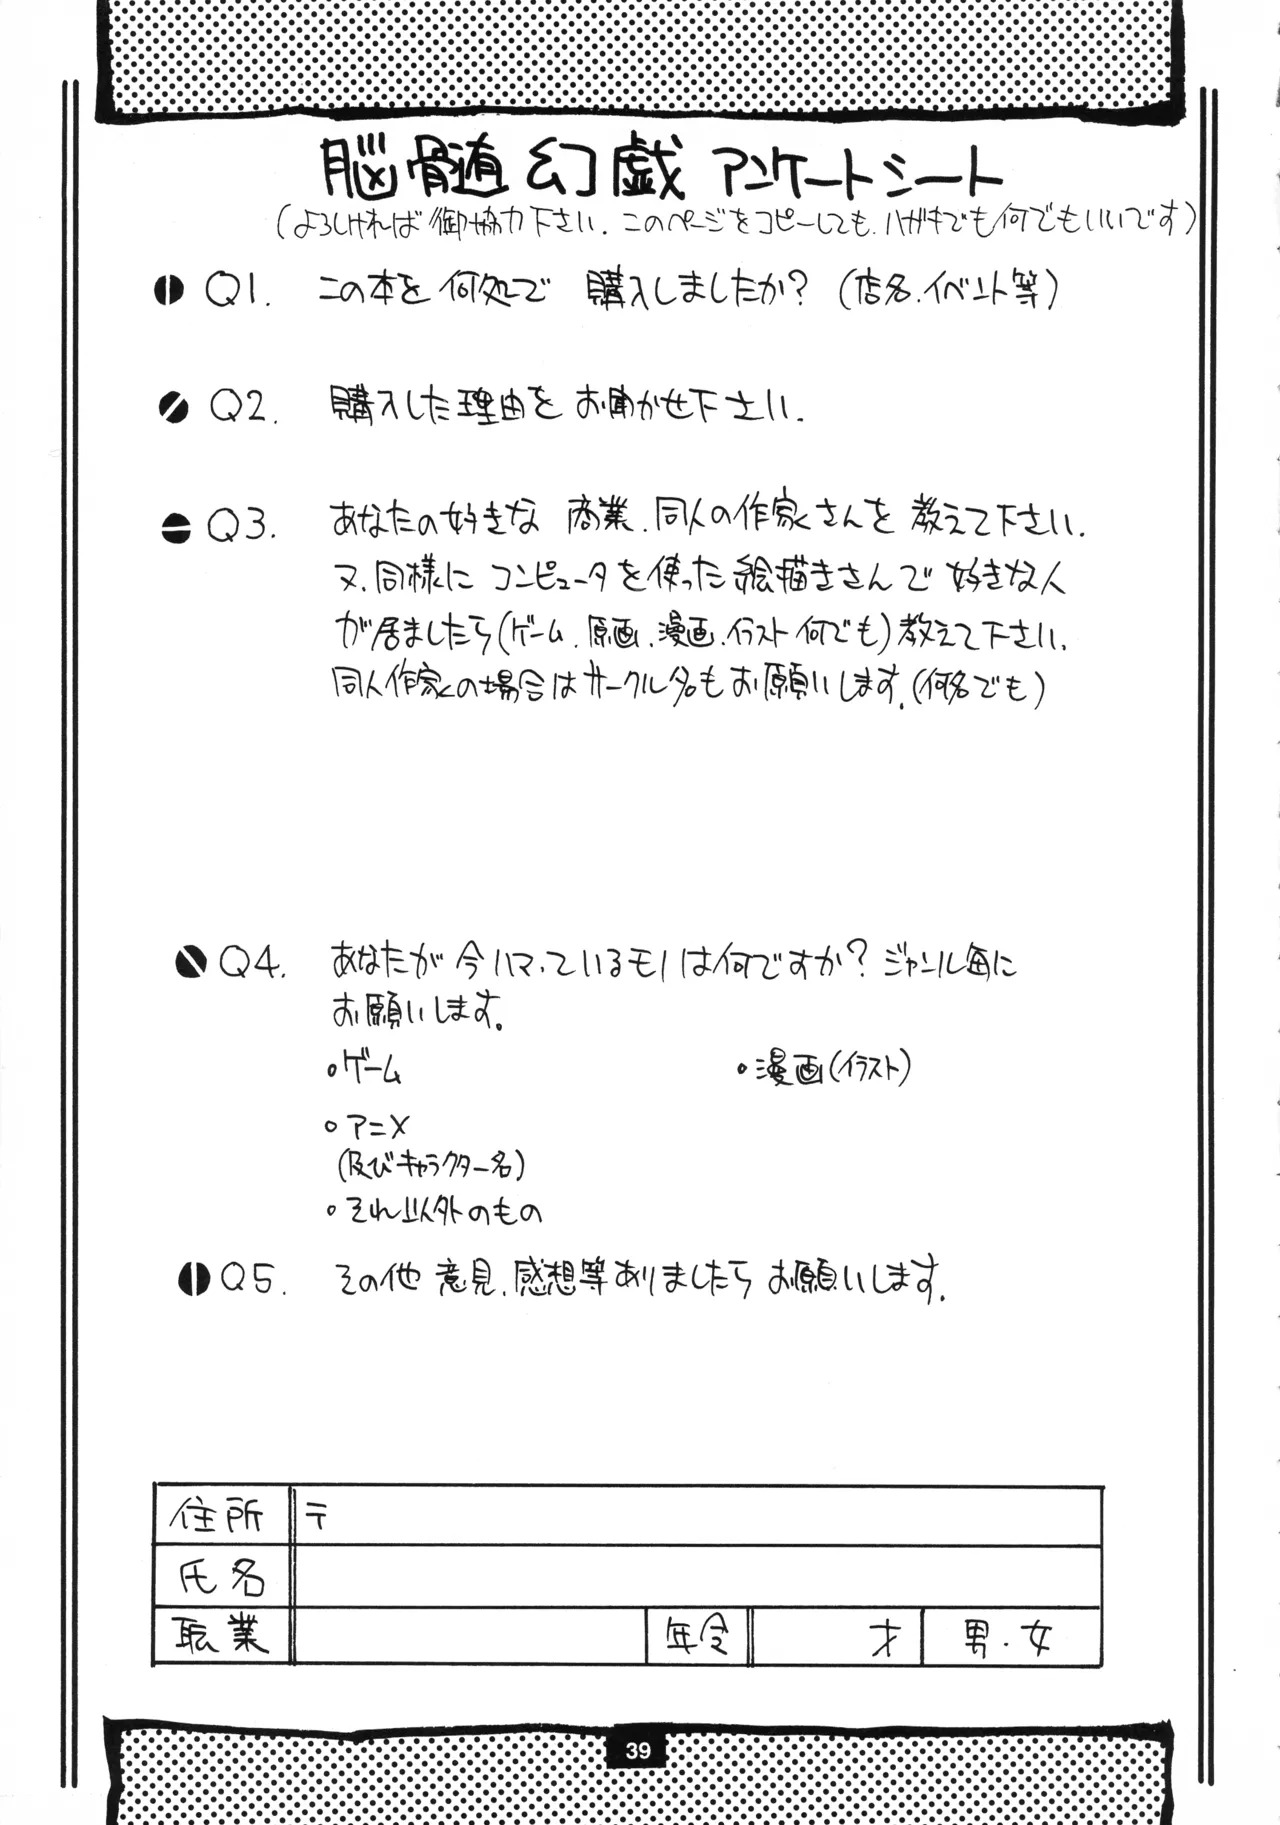 脳髄幻戯 アンケートシート
(よろしければ御協力下さい．このページをコピーしても、ハガキでも何でもいいです)
Q1. この本を何処で 購入しましたか? (店名、イベント等)
Q2. 購入した理由をお聞かせ下さい．
Q3. あなたの好きな 商業、同人の作家さんを 教えて下さい．
又、同様に コンピュータを使った絵描きさんで 好きな人
が居ましたら(ゲーム、原画、漫画、イラスト 何でも)教えて下さい．
同人作家の場合はサークル名もお願いします。(何名でも)
Q4. あなたが 今ハマっているモノは何ですか? ジャンル毎に
お願いします。
・ゲーム ・漫画(イラスト)
・アニメ
(及びキャラクター名)
・それ以外のもの
Q5. その他 意見、感想等ありましたら お願いします．
住所 〒
氏名
職業 年令 才 男・女
39